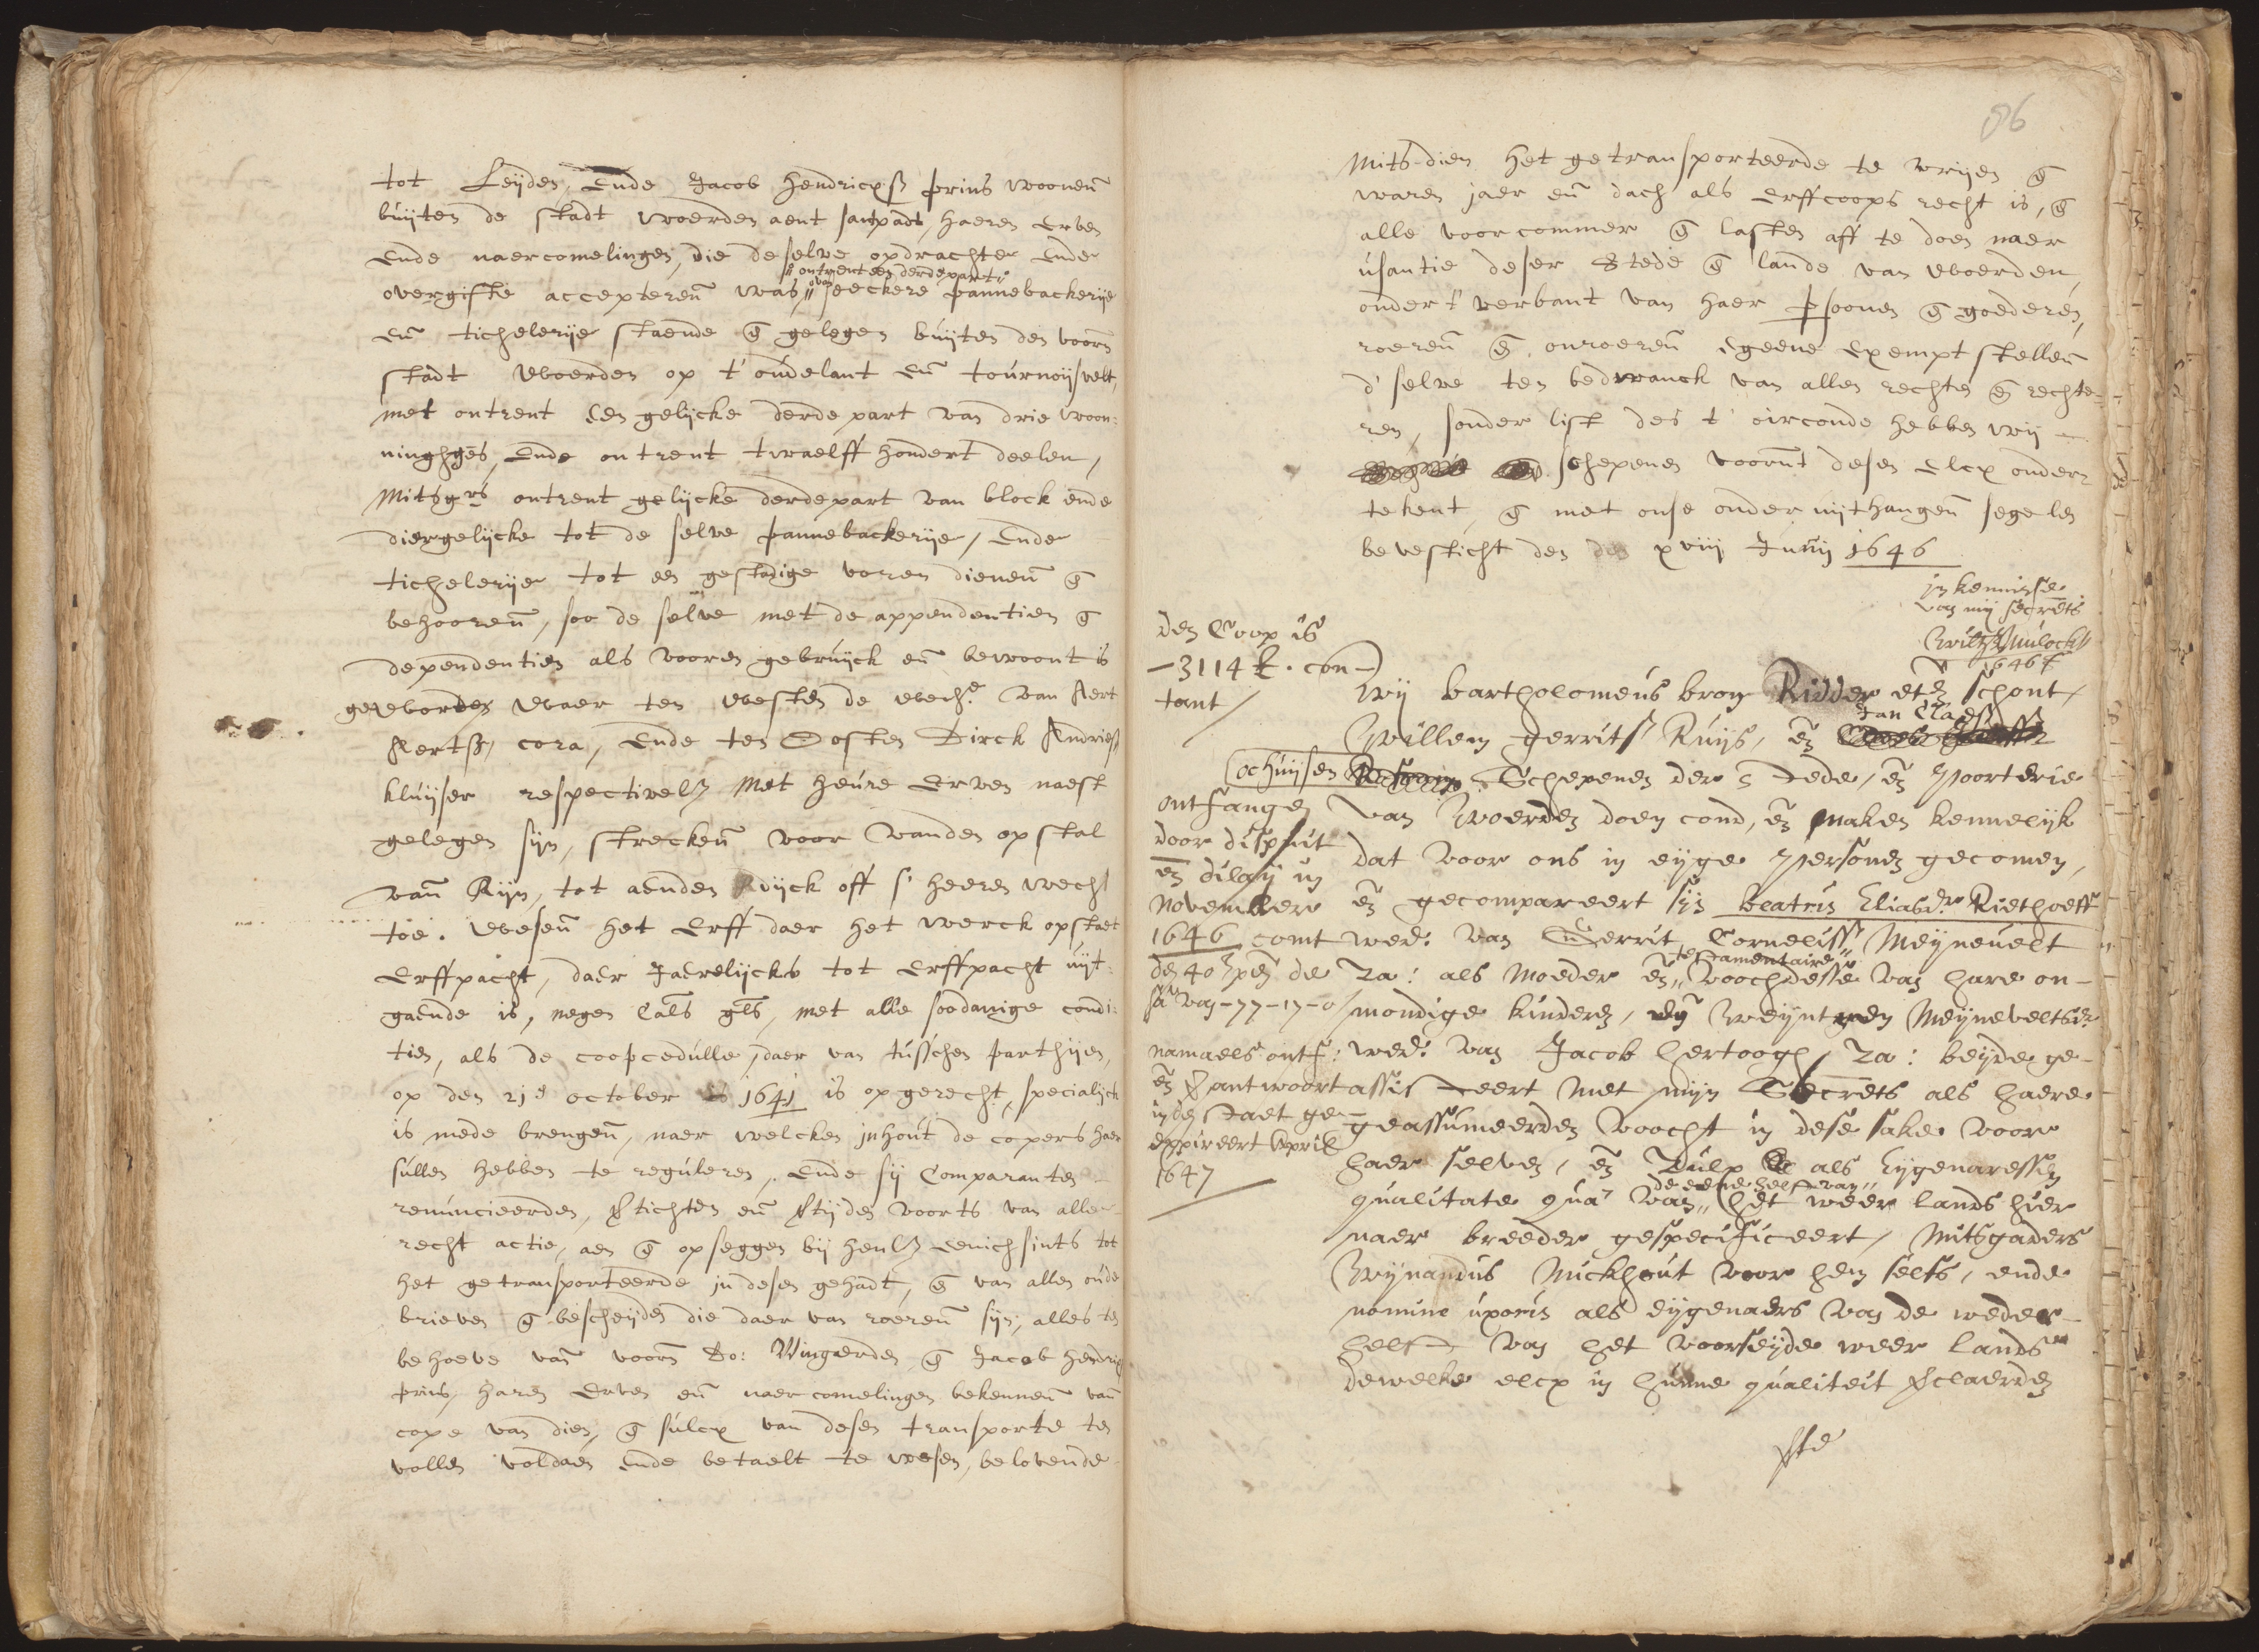 tot Leijden, Ende Jacob Hendricxsz prins woonen̄
buijten de stadt woerden aent Jaxpadt, haeren erven
Ende naercomelingen, die deselve opdrachte Ende
ontrent een derdepart
overgifte accepteren̄ was, van seeckere pannebackerije
en̄ tichelerije staende en̄ gelegen buijten den voorn
stadt Woerden op t'oudelant en̄ tournoijsvelt,
met ontrent een gelijcke derde part van drie woon:
ninghges, Ende ontrent twaelff hondert deelen,
Mitsgrs ontrent gelijcke derdepart van block ende
diergelijcke tot de selve pannebackerije, Ende
tichelerije tot een gestadige voren dienen̄ en̄
behooren̄, soo de selve met de appendentien en̄
dependentien als vooren gebruijck en̄ bewoont is
geworden Waer ten westen de wede. van Aert
Aertsz, cora, Ende ten Oosten Dirck Andriesz
kluijser respectivelz met heure Erven naest
gelegen sijn, strecken̄ voor vanden opstal
van̄ Rijn, tot aenden dijck off s'heeren wech
toe. Wesen̄ het Erff daer het werck opstaet
Erffpacht, daer Jaerelijcks tot Erffpacht uijt:
gaende is, negen Cals gls, met alle soodanige condi:
tien, als de coopcedulle, daer van tusschen parthijen,
op den 21e october 1641 is opgerecht, specialijck
is mede brengen̄, naer welcken inhout de copers haer
sullen hebben te reguleren, Ende sij Comparanten
renuncieerden, vtichten en̄ vtijden voorts van alle
recht actie, aen en̄ opseggen bij henlz eenichsints tot
het getransporteerde in desen gehadt, en̄ van allen oude
brieven en̄ bescheijden die daer van roeren̄ sijn, alles ten
behoeve van̄ voorn Do: Wingaerden en̄ Jacob Hendricx
prins, haren Erven en̄ naercomelingen bekennen̄ van̄
cope van dien, en̄ sulcx van desen transporte ten
vollen voldaen ende betaelt te wesen, belovende
86
Mits dien het getransporteerde te vrijen en̄
waren jaer en̄ dach als Erffcoops recht is, en̄
alle voorcommer en̄ lasten aff te doen naer
usantie deser Stede en̄ lande van Woerden,
onder t'verbant van haer psoonen en̄ goederen,
roeren̄ en̄ onroeren̄ Egeene Exempt stellen̄
d'selve ten bedwanck van allen rechten en̄ rechte-
ren, sonder list des t'oirconde hebben wij
schepenen voornt desen elcx onder
tekent, en̄ met onse onder uijthangen̄ segelen
bevesticht den xviij Junij 1646
in kennisse
van mij secrets
1646
den Coop is
- 3114 £. con-
tant
Wij bartholomeus bron Ridder etz schout,
Jan Claesz
Willem gerritsz Ruijs, en̄
ochuijsen Schepenen der stede, en̄ poorterie
van Woerden doen cond, en̄ maken kennelijk
dat voor ons in eijge personen gecomen,
en̄ gecompareert sijn beatris Eliasdr. Riethoeff
wede: van Gerrit Cornelissz Meijnevelt
testamentaire
Za: als Moeder en̄ voochdesse van hare on-
mondige kinderen, en̄ Weijntgen Meijneveltsdr.
wede. van Jacob hertoogh, Za: beijde ge-
assisteert met mijn Secrets als haere
geassumeerden voocht in dese sake voor
haer selven, en̄ Dulp als Eijgenaressen
de eene helft van
qualitate qua van het weer lands hier
naer breeder gespecificeert, Mitsgaders
Wijnandus Mickhout voor hem selfs, ende
nomine uxoris als eijgenaers van de weder-
helft van het voorseijde weer lands
dewelke elcx in hunne qualiteit vclaerden
ontfangen
door disput
en̄ dilaij in
november
1646 comt
den 40 pen̄ de
sa van - 77-17-0
namaels ontf:
en̄ vantwoort
in den staet ge-
expireert April
1647
vte